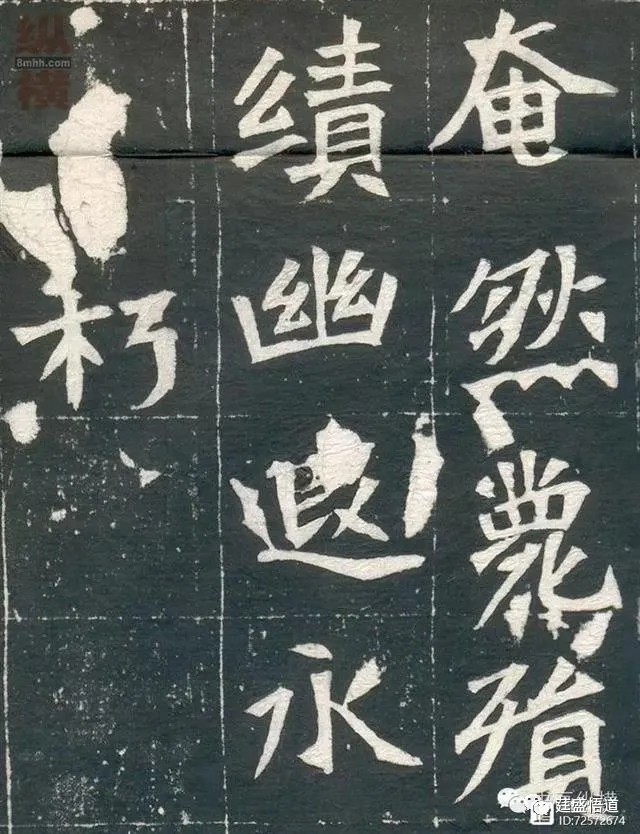 奄然薨殞
績幽遐永
朽
纵横
8mhh.com
廷盛悟道
ID:72572674